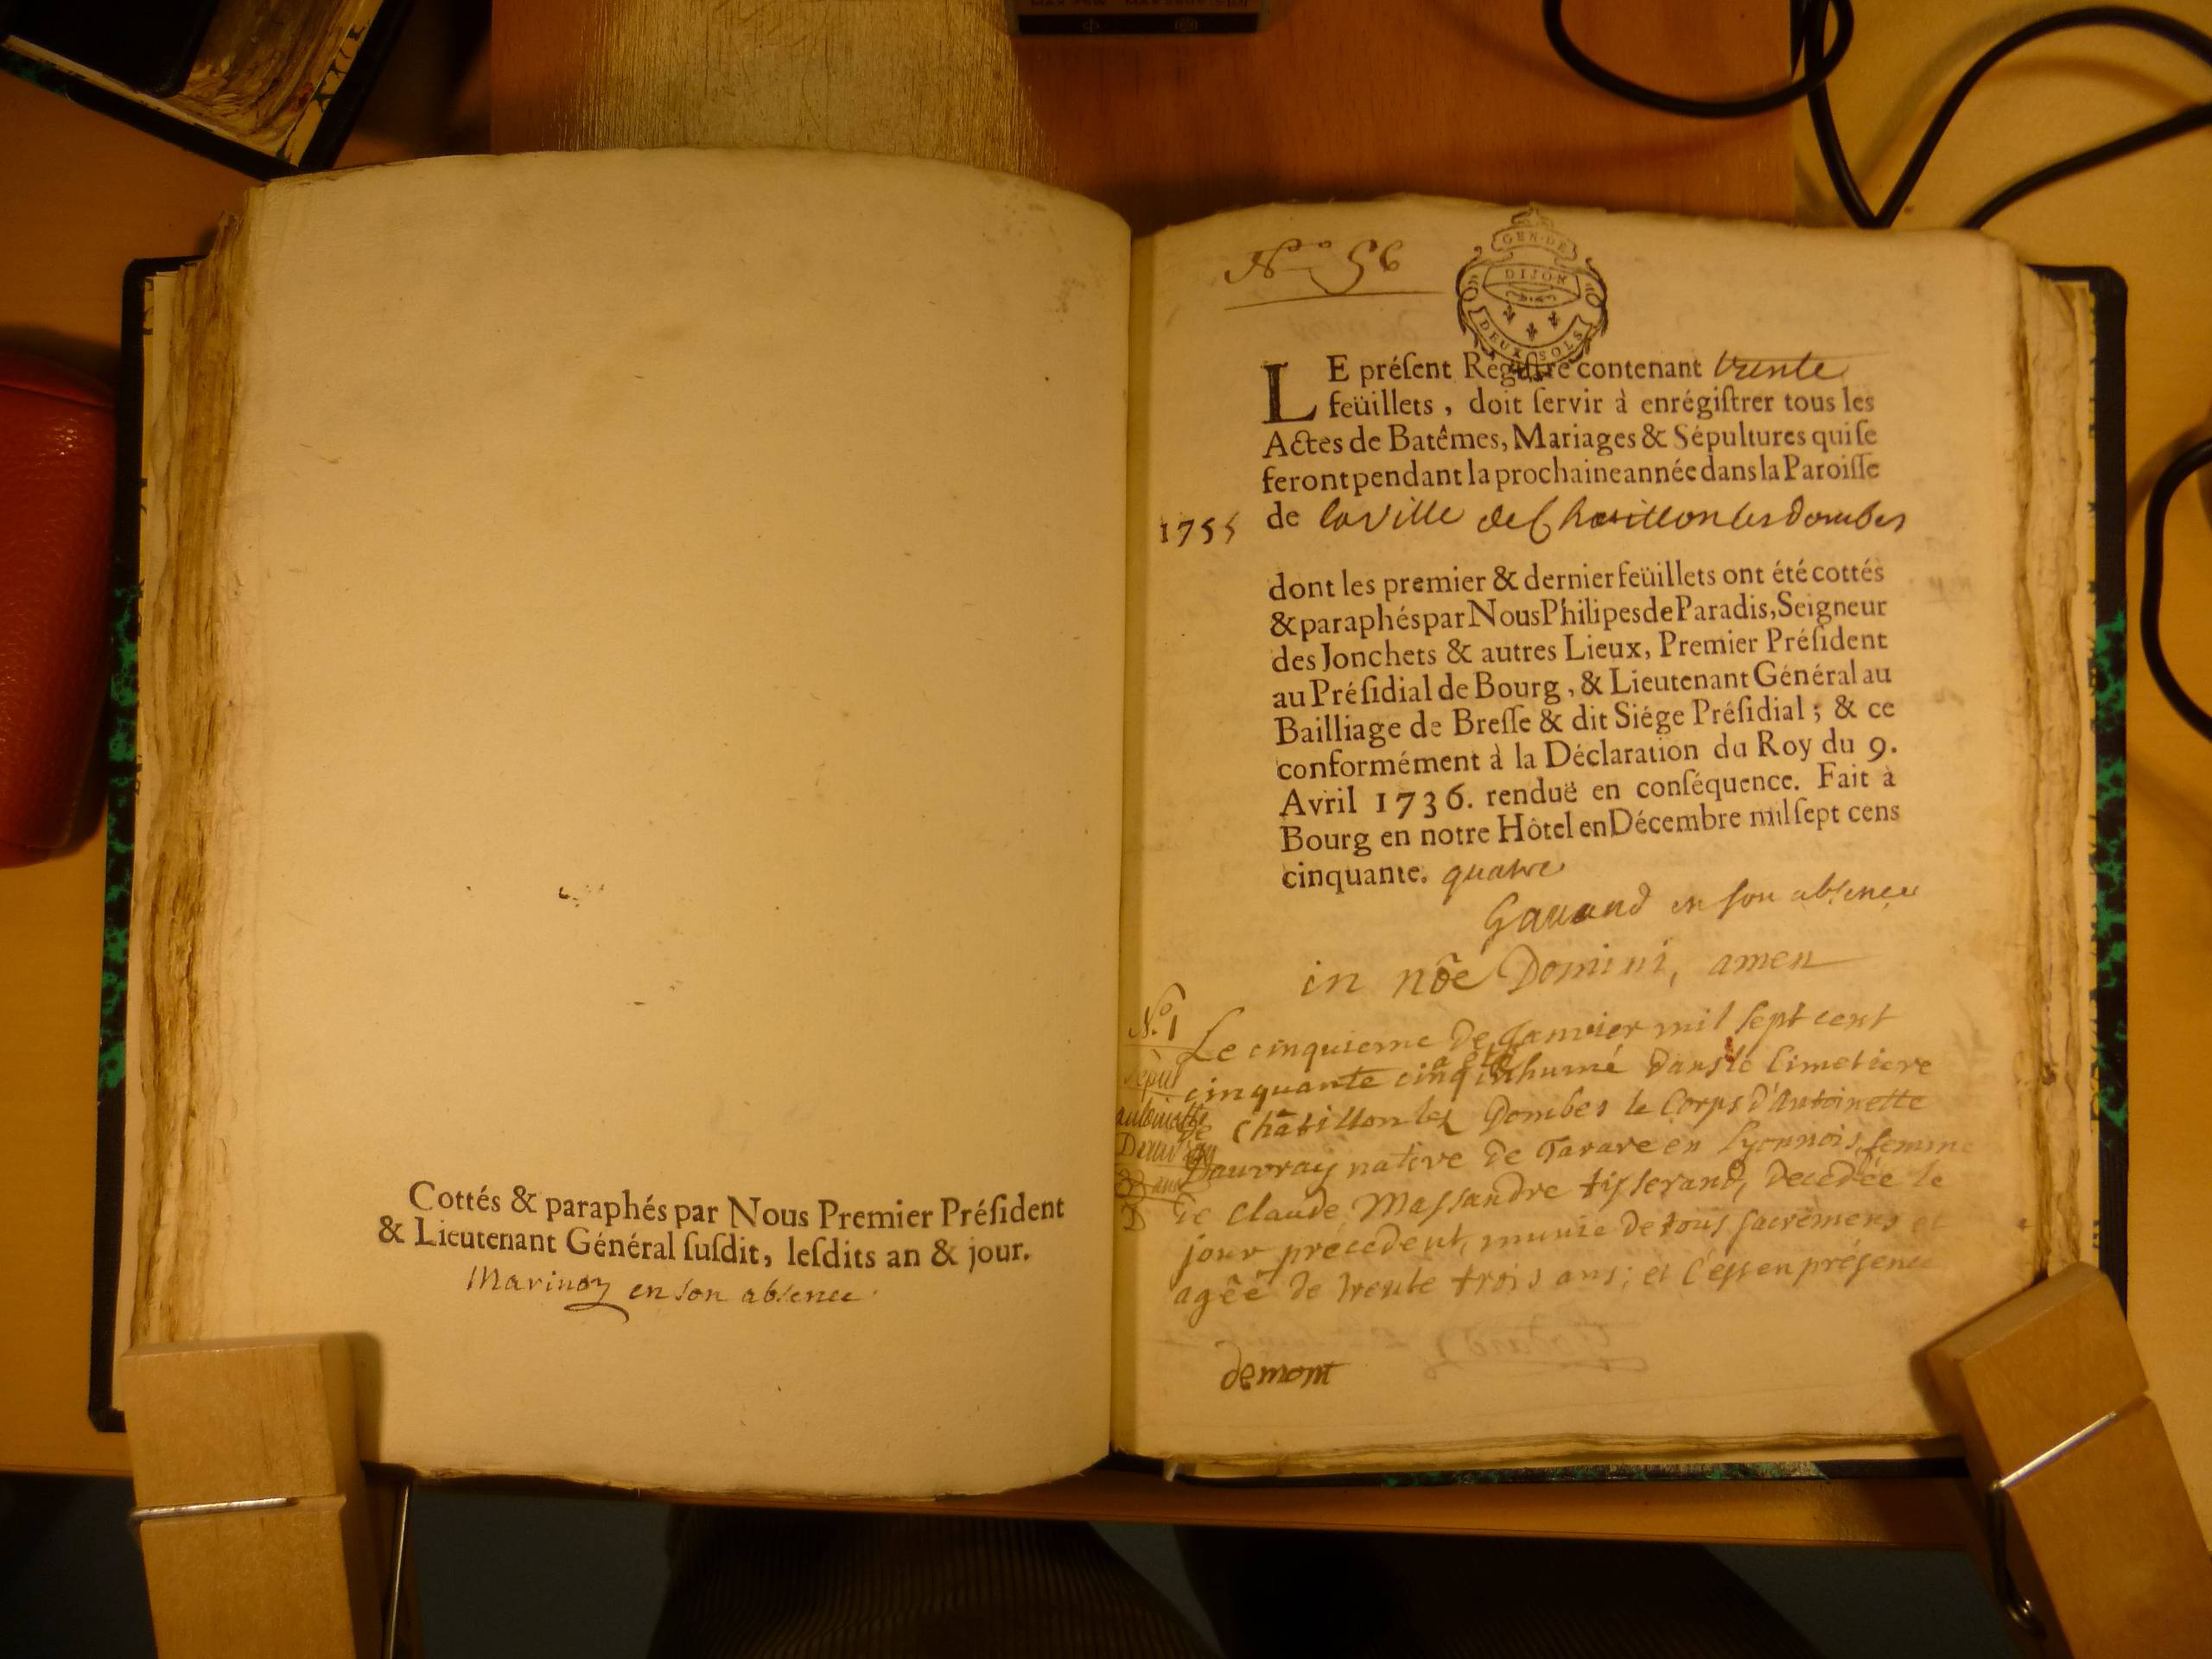 Cottés & paraphés par Nous Premier Préſident
& Lieutenant Général ſuſdit, leſdits an & jour.
en son absence
N.º 56
GEN·DE
DIJON
DEUX SOLS
LE préſent Regiſtre contenant trente
feüillets, doit ſervir à enrégiſtrer tous les
Actes de Batêmes, Mariages & Sépultures qui ſe
feront pendant la prochaine année dans la Paroiſſe
1755 de la Ville de Chatillon les dombes
dont les premier & dernier feüillets ont été cottés
& paraphés par Nous Philipes de Paradis, Seigneur
des Jonchets & autres Lieux, Premier Préſident
au Préſidial de Bourg, & Lieutenant Général au
Bailliage de Breſſe & dit Siége Préſidial; & ce
conformément à la Déclaration du Roy du 9.
Avril 1736. renduë en conſéquence. Fait à
Bourg en notre Hôtel en Décembre mil ſept cens
cinquante. quatre
en son absence
in nõe Domini, amen
N.º 1
Sepult
antoinette
Dauvray
33 ans
D
Le cinquieme de Janvier mil sept cent
cinquante cinq a été inhumé dans le Cimetiere
de Châtillon lez Dombes le Corps d'Antoinette
Dauvray native de Tarare en Lyonnois, femme
de Claude Massandre tisserand, decedée le
jour précédent, munie de tous sacremens et
agée de trente trois ans; et c'est en présence
demont